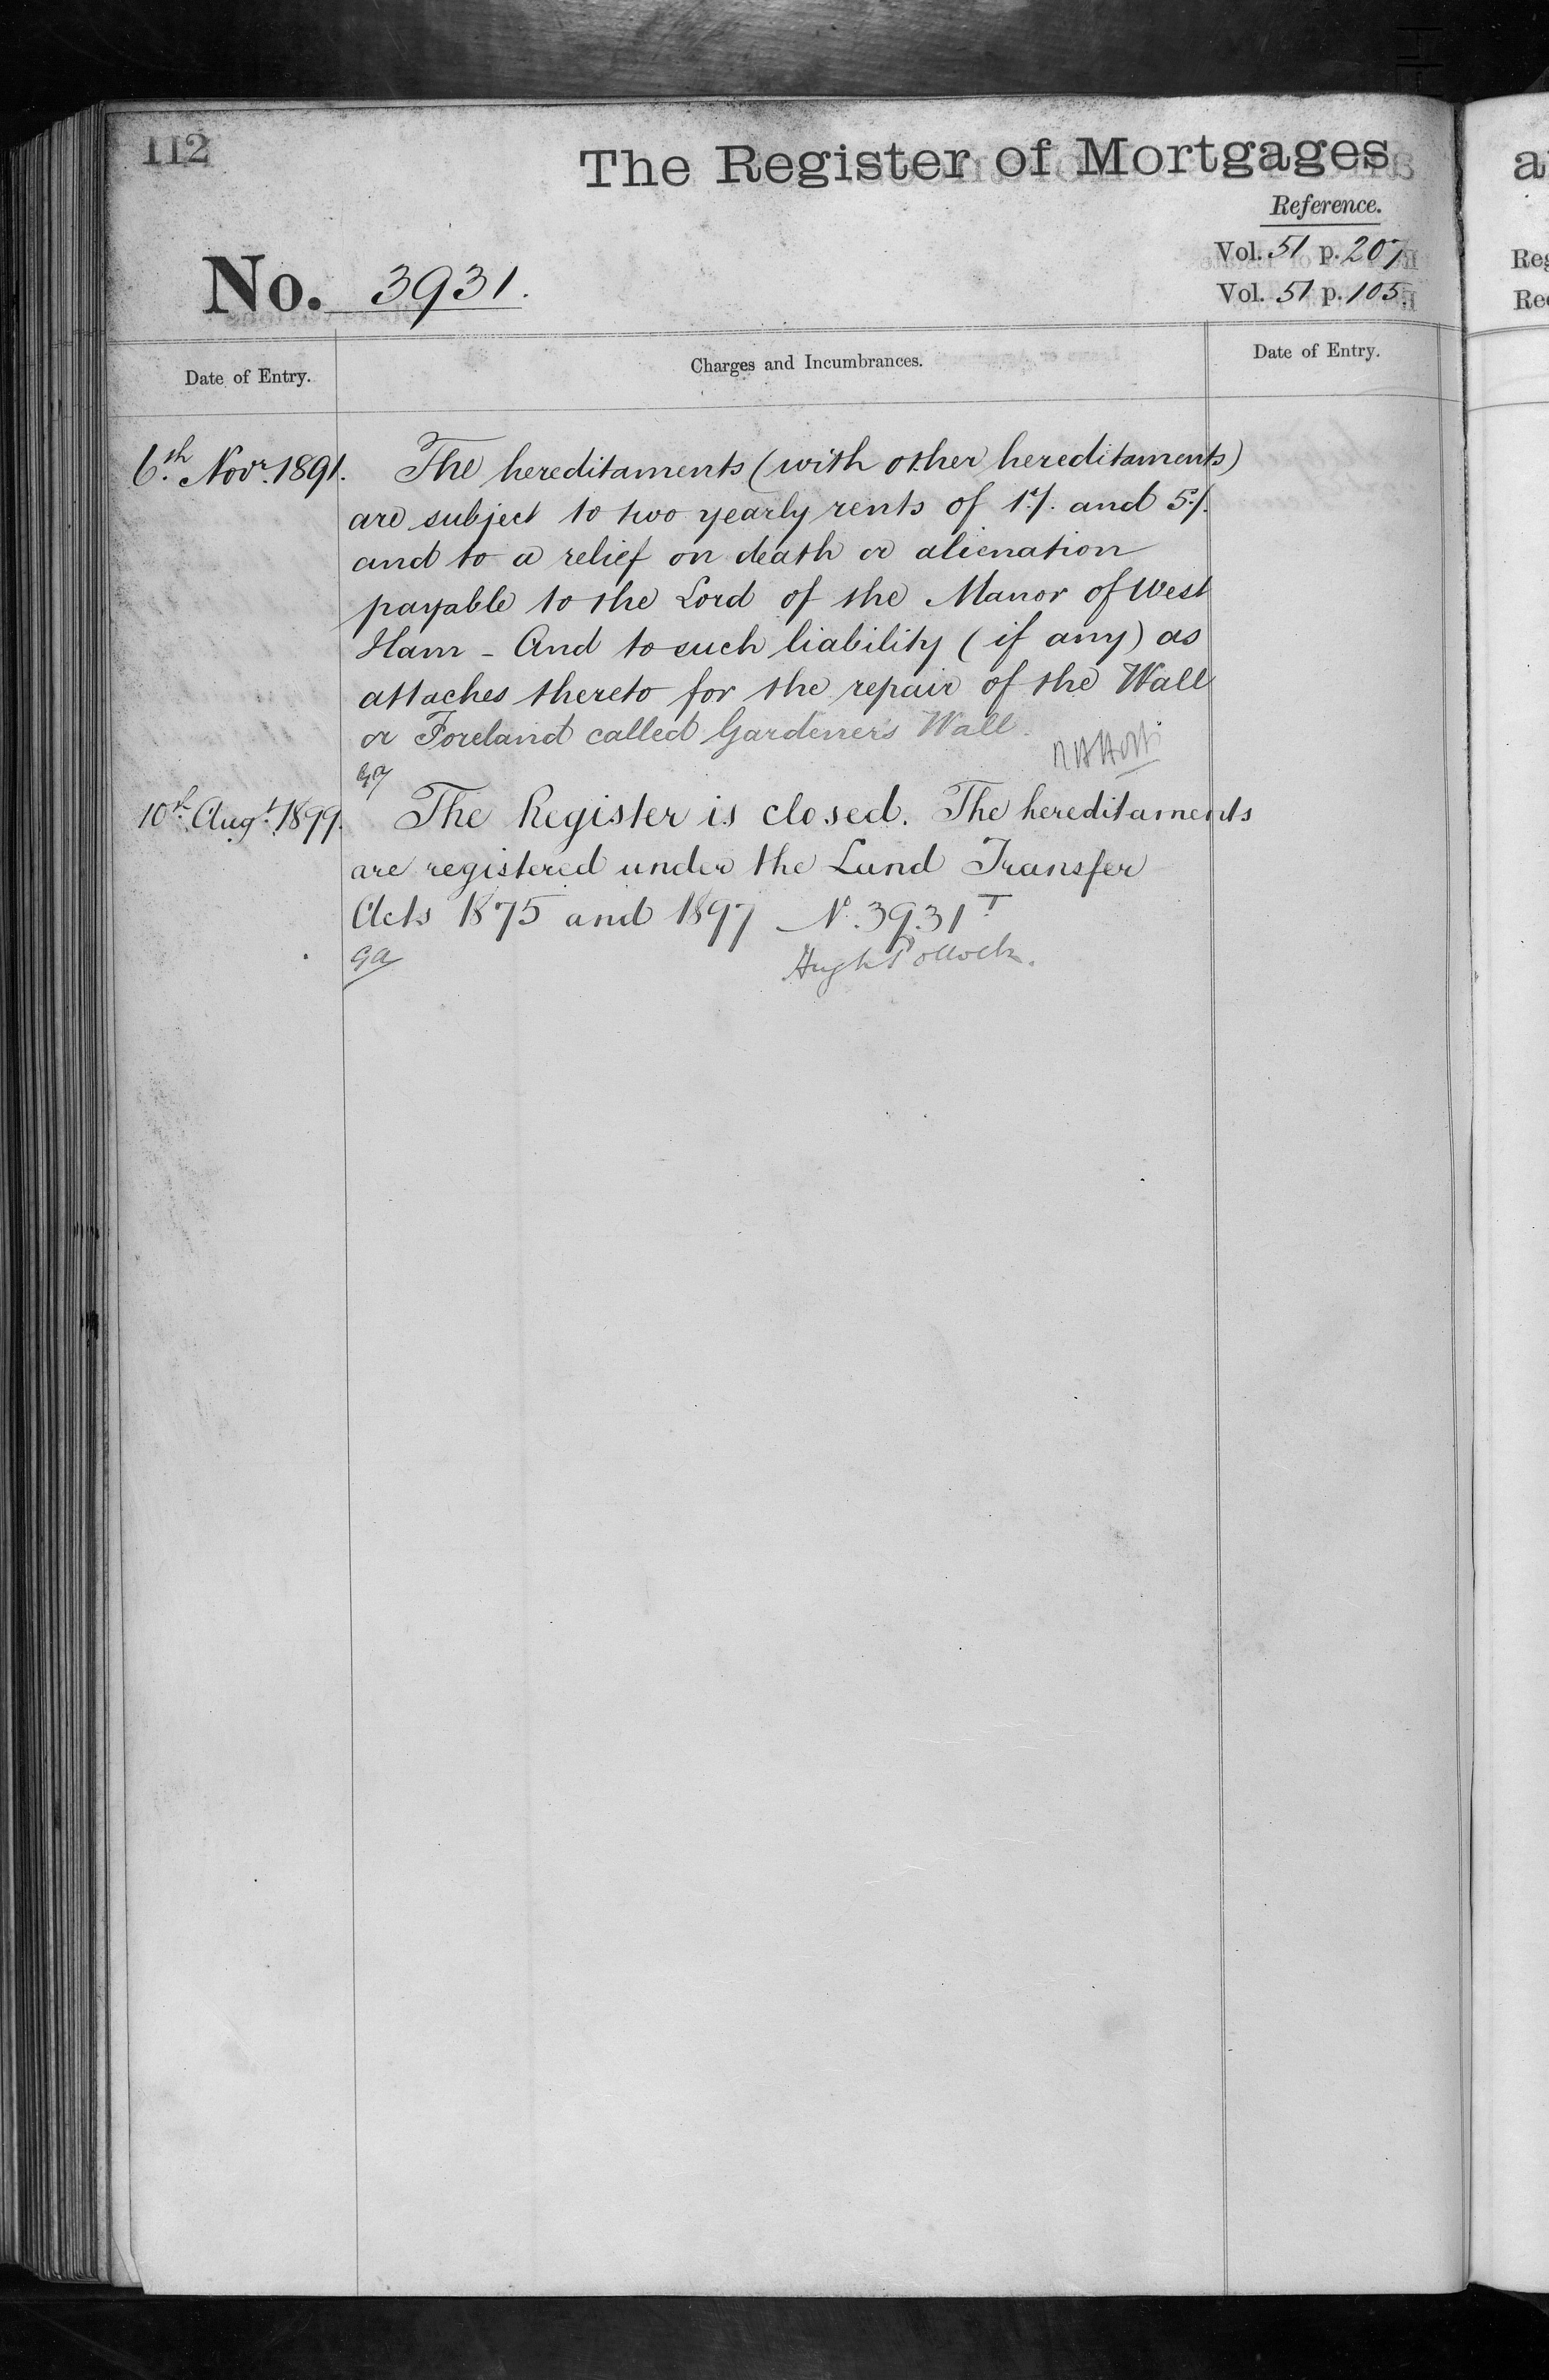 112
The Register of Mortgages
Reference.
Vol. 51 p. 207
Vol. 51 p. 105.
No. 3931.
Date of Entry.
Charges and Incumbrances.
Date of Entry.
6th. Novr. 1891. The hereditaments (with other hereditaments)
are subject to two yearly rents of 1s/. and 5/.
and to a relief on death or alienation
payable to the Lord of the Manor of West
Ham - And to such liability (if any) as
attaches thereto for the repair of the Wall
or Foreland called Gardener's Wall.
10th. Augt. 1899. The Register is closed. The hereditaments
are registered under the Land Transfer
Acts 1875 and 1897 No. 3931T.
GA
Hugh Pollock.
a
Reg
Re